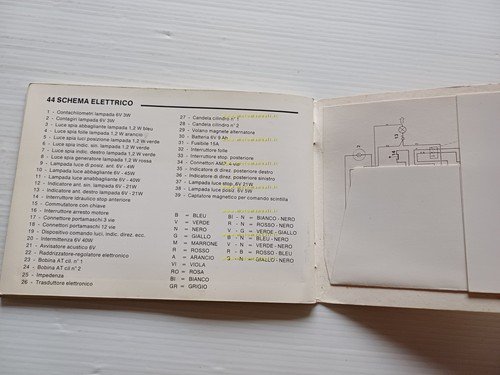 44 SCHEMA ELETTRICO
1 - Contachilometri lampada 6V 3W
2 - Contagiri lampada 6V 3W
3 - Luce spia abbagliante lampada 1,2 W bleu
4 - Luce spia folle lampada 1,2 W arancio
5 - Luce spia luci posizione lampada 1,2 W verde
6 - Luce spia indic. sin. lampada 1,2 W verde
7 - Luce spia indic. destro lampada 1,2 W verde
8 - Luce spia generatore lampada 1,2 W rossa
9 - Lampada luce di posiz. ant. 6V - 4W
10 - Lampada luce abbagliante 6V - 45W
11 - Lampada luce anabbagliante 6V - 40W
12 - Indicatore ant. sin. lampada 6V - 21W
13 - Indicatore ant. destro lampada 6V - 21W
14 - Interruttore idraulico stop anteriore
15 - Commutatore con chiave
16 - Interruttore arresto motore
17 - Connettore portamaschi 3 vie
18 - Connettore portamaschi 2 vie
19 - Dispositivo comando luci, indic. direz. ecc.
20 - Intermittenza 6V 40W
21 - Avvisatore acustico 6V
22 - Raddrizzatore-regolatore elettronico
23 - Bobina AT cil n° 1
24 - Bobina AT cil n° 2
25 - Impedenza
26 - Trasduttore elettronico
27 - Candela cilindro n° 1
28 - Candela cilindro n° 2
29 - Volano magnete alternatore
30 - Batteria 6V 9 Ah
31 - Fusibile 15A
32 - Interruttore folle
33 - Interruttore stop. posteriore
34 - Connettori AMP 4 vie
35 - Indicatore di direz. posteriore destro
36 - Indicatore di direz. posteriore sinistro
37 - Lampada luce stop. 6V 21W
38 - Lampada luce posteriore 6V 5W
39 - Captatore magnetico per comando scintilla
B = BLEU
V = VERDE
N = NERO
G = GIALLO
M = MARRONE
R = ROSSO
A = ARANCIO
VI = VIOLA
RO = ROSA
BI = BIANCO
GR = GRIGIO
BI - N = BIANCO - NERO
R - N = ROSSO - NERO
V - G = VERDE - GIALLO
B - N = BLEU - NERO
V - N = VERDE - NERO
R - B = ROSSO - BLEU
G - N = GIALLO - NERO